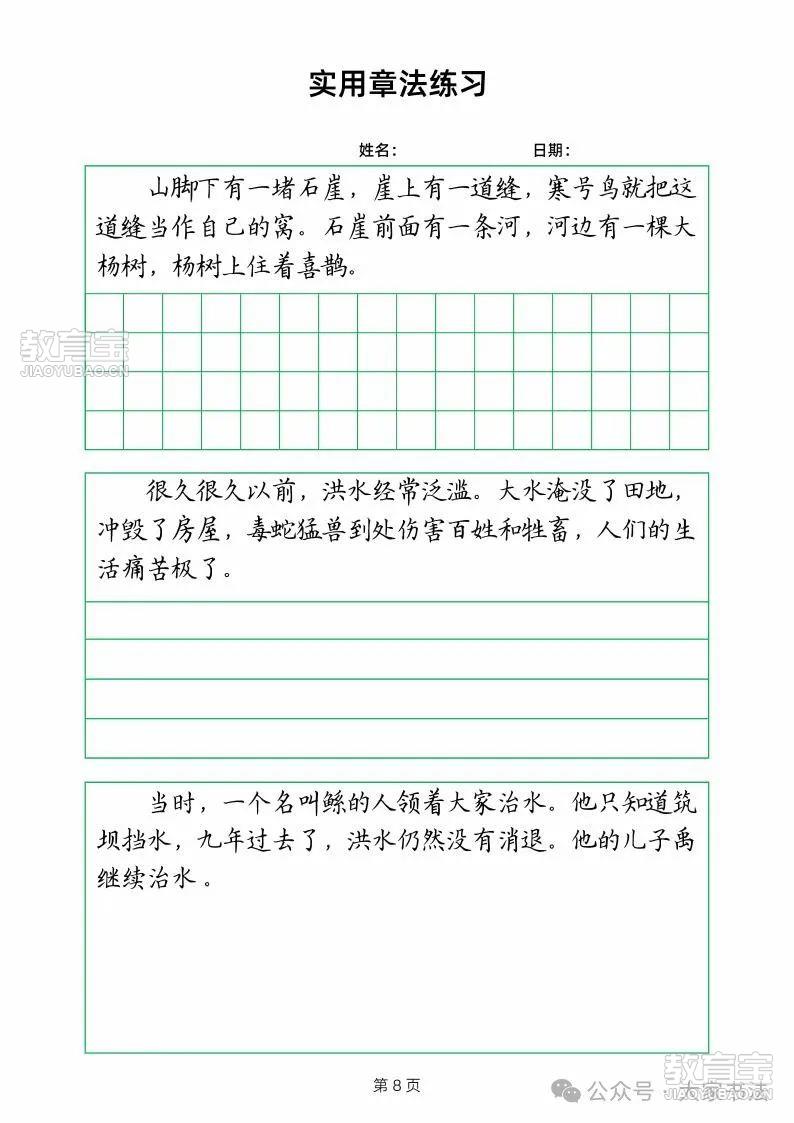 实用章法练习
姓名： 日期：
山脚下有一堵石崖，崖上有一道缝，寒号鸟就把这
道缝当作自己的窝。石崖前面有一条河，河边有一棵大
杨树，杨树上住着喜鹊。
教育宝
JIAOYUBAO.CN
很久很久以前，洪水经常泛滥。大水淹没了田地，
冲毁了房屋，毒蛇猛兽到处伤害百姓和牲畜，人们的生
活痛苦极了。
当时，一个名叫鲧的人领着大家治水。他只知道筑
坝挡水，九年过去了，洪水仍然没有消退。他的儿子禹
继续治水。
第 8 页
教育宝
JIAOYUBAO.CN
公众号 · 大家书法